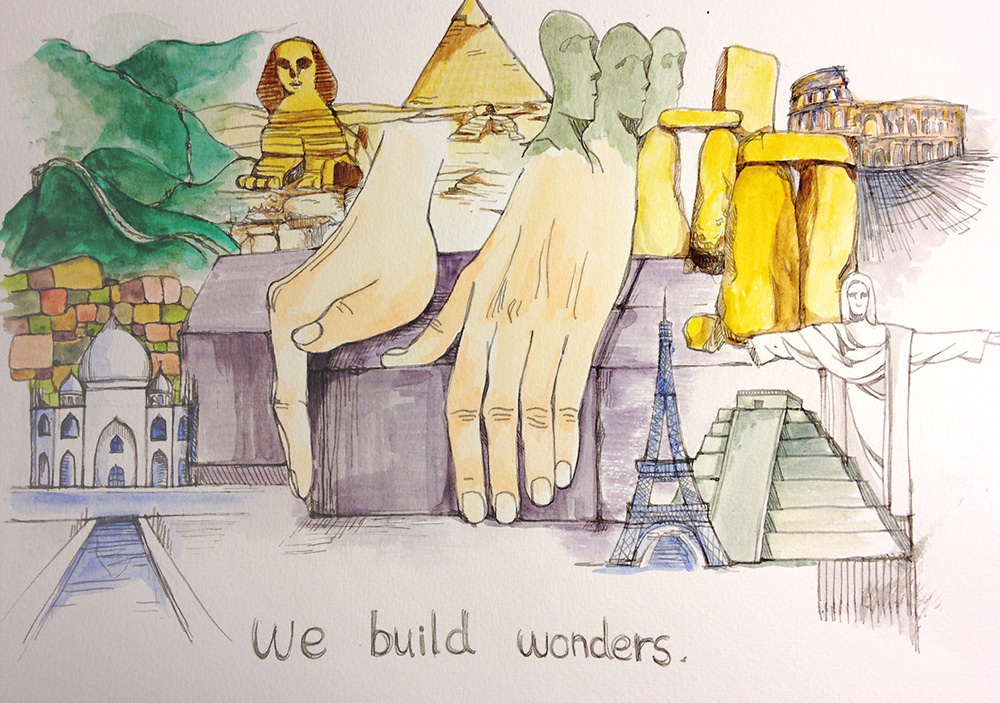 We build wonders.